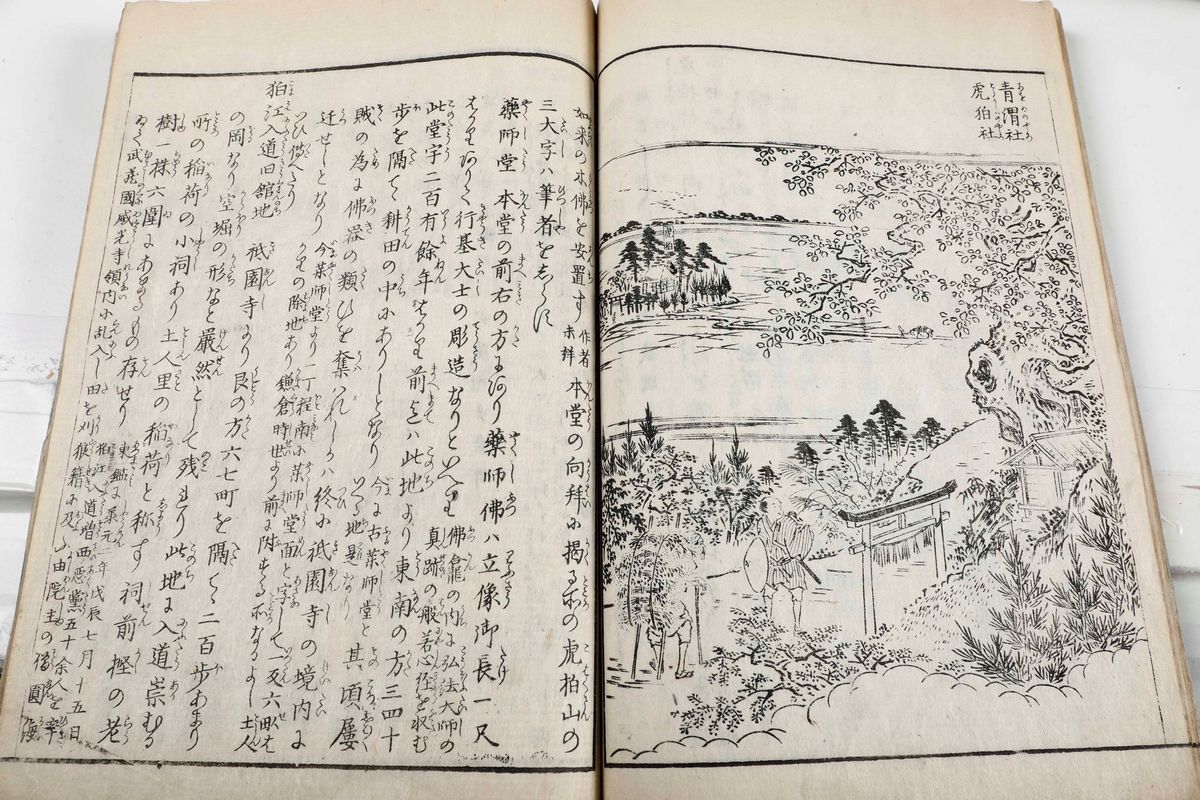 青渭社
虎狛社
如来の木佛を安置す 作者未詳 本堂の向拝に掲る所の虎狛山の
三大字ハ筆者をしらに
薬師堂 本堂の前右の方にあり 薬師佛ハ立像御長一尺
行基大士の彫造なりといへり 佛龕の内に弘法大師の真跡の般若心経を収む
此堂宇二百有餘年 前迄ハ此地より東南の方三四十
歩を隔て耕田の中にありしとなり 今に古薬師堂と 其頃屢
賊の為に佛器の類ひを奪ハれしかハ終に祇園寺の境内に
迁せしとなり 今薬師堂より一丁程南に薬師堂面と字して一反六畝
の除地あり鎌倉時世より前に
狛江入道旧館地 祇園寺より艮の方六七町を隔て二百歩あまり
の岡なり 空堀の形など嚴然として残れり 此地に入道崇むる
所の稲荷の小祠あり 土人里の稲荷と称す 祠前樫の老
樹一株六圍にあまるもの存せり 東鑑に承元二年戊辰七月十五日
狛江入道増西悪黨五十余人を率
ゐて武蔵國威光寺領内に乱入し田を刈
狼籍に及ふ由院主の僧圓海